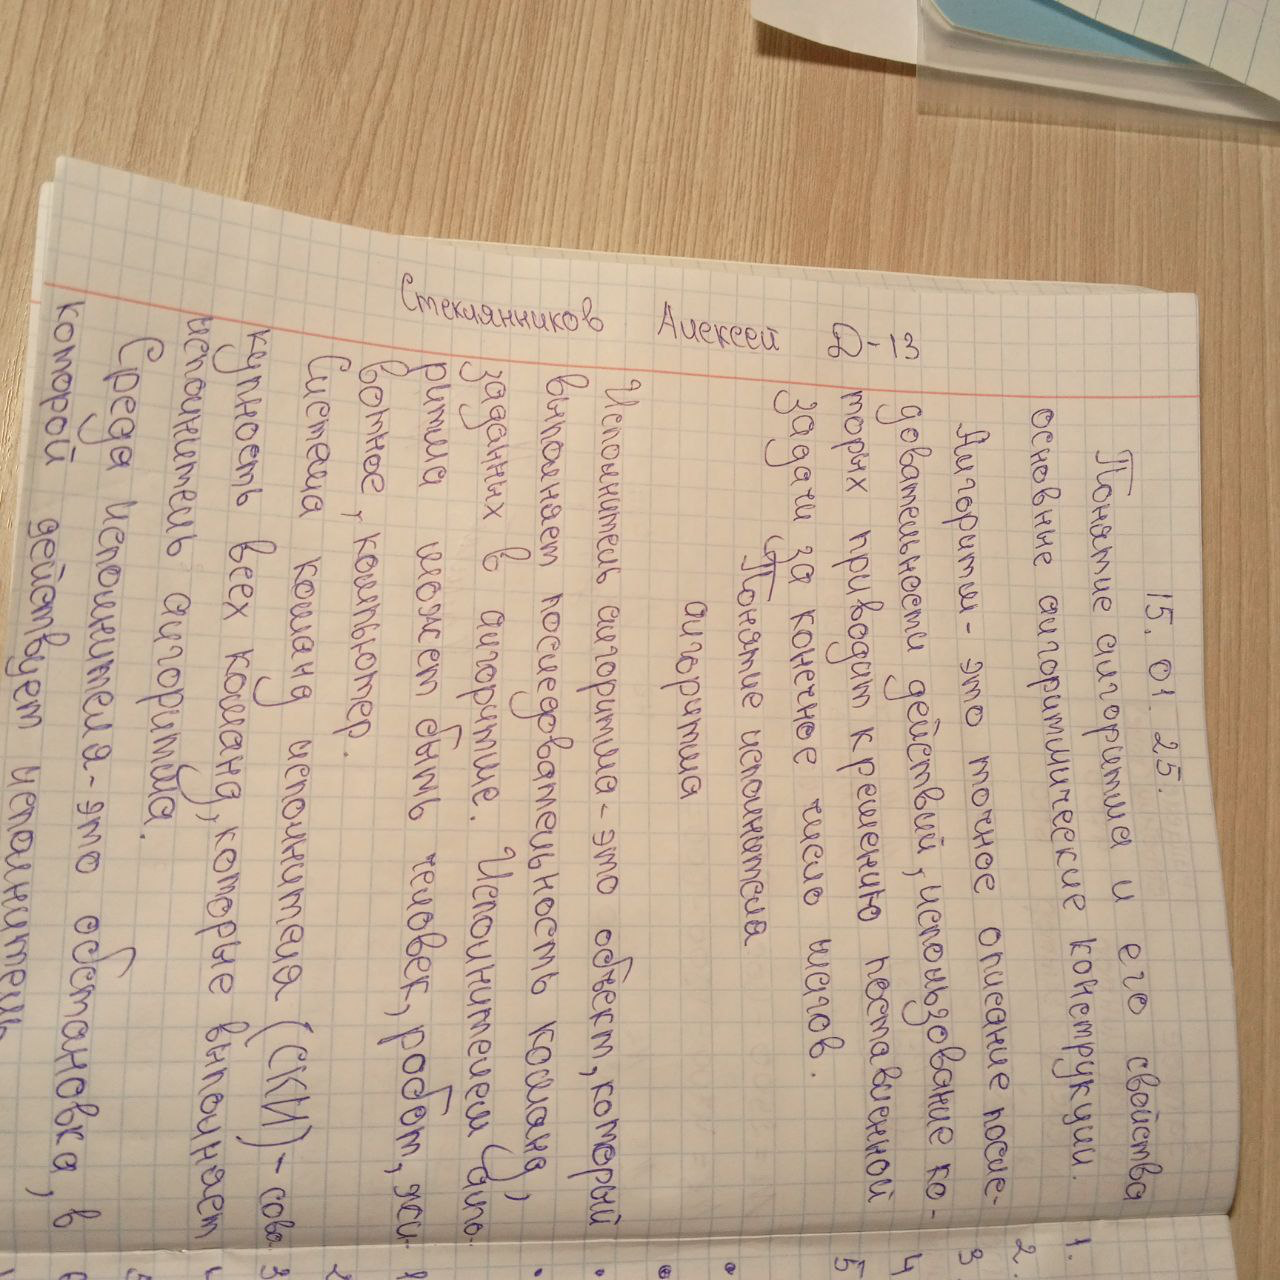 Стеклянников Алексей Д-13
15.01.25.
Понятие алгоритма и его свойства
основные алгоритмические конструкции.
Алгоритм - это точное описание после-
довательности действий, использование ко-
торых приводит к решению поставленной
задачи за конечное число шагов.
Понятие исполнителя
алгоритма
Исполнитель алгоритма - это объект, который
выполняет последовательность команд,
заданных в алгоритме. Исполнителем алго-
ритма может быть человек, робот, жи-
вотное, компьютер.
Система команд исполнителя (СКИ) - сово-
купность всех команд, которые выполняет
исполнитель алгоритма.
Среда исполнителя - это обстановка, в
которой действует исполнитель
1.
2.
3
4
5
1
2
3